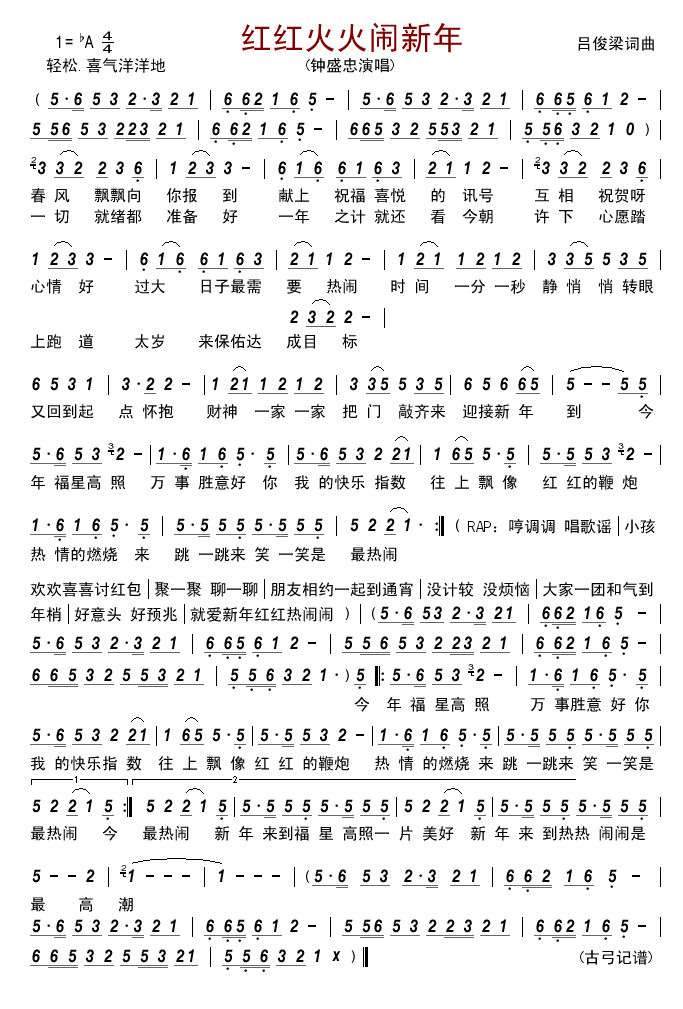 红红火火闹新年
1=♭A 4/4
吕俊梁词曲
轻松.喜气洋洋地
(钟盛忠演唱)
( 5·6 5 3 2·3 2 1 | 6 62 1 6 5 - | 5·6 5 3 2·3 2 1 | 6 65 6 1 2 - |
5 56 5 3 223 2 1 | 6 62 1 6 5 - | 665 3 2 553 2 1 | 5 56 3 2 1 0 ) |
2 3 3 2 2 3 6 | 1 2 3 3 - | 6 1 6 6 1 6 3 | 2 1 1 2 - | 2 3 3 2 2 3 6 |
春 风 飘飘向 你报 到 献上 祝福 喜悦 的 讯号 互 相 祝贺呀
一 切 就绪都 准备 好 一年 之计 就还 看 今朝 许 下 心愿踏
1 2 3 3 - | 6 1 6 6 1 6 3 | 2 1 1 2 - | 1 2 1 1 2 1 2 | 3 3 5 5 3 5 |
心情 好 过大 日子最需 要 热闹 时 间 一分 一秒 静 悄 悄 转眼
2 3 2 2 - |
上跑 道 太岁 来保佑达 成目 标
6 5 3 1 | 3·2 2 - | 1 21 1 2 1 2 | 3 35 5 3 5 | 6 5 6 65 | 5 - - 5 5 |
又回到起 点 怀抱 财神 一家 一家 把 门 敲齐来 迎接新 年 到 今
5·6 5 3 3 2 - | 1·6 1 6 5· 5 | 5·6 5 3 2 21 | 1 65 5·5 | 5·5 5 3 3 2 - |
年 福星高 照 万 事 胜意好 你 我 的快乐 指数 往 上 飘 像 红 红的鞭 炮
1·6 1 6 5· 5 | 5·5 5 5 5·5 5 5 | 5 2 2 1 · :|| ( RAP: 哼调调 唱歌谣 | 小孩
热 情的燃烧 来 跳 一跳来 笑 一笑是 最热闹
欢欢喜喜讨红包 | 聚一聚 聊一聊 | 朋友相约一起到通宵 | 没计较 没烦恼 | 大家一团和气到
年梢 | 好意头 好预兆 | 就爱新年红红热闹闹 ) | ( 5·6 53 2·3 21 | 662 16 5 - |
5·6 5 3 2·3 2 1 | 6 65 6 1 2 - | 5 5 6 5 3 2 23 2 1 | 6 62 1 6 5 - |
6 6 5 3 2 5 5 3 2 1 | 5 5 6 3 2 1 ·) 5 ||: 5·6 5 3 3 2 - | 1·6 1 6 5· 5 |
今 年 福 星高 照 万 事胜意 好 你
5·6 5 3 2 21 | 1 65 5·5 | 5·5 5 3 2 - | 1·6 1 6 5·5 | 5·5 5 5 5·5 5 5 |
我 的快乐指 数 往 上 飘 像 红 红 的鞭炮 热 情 的燃烧 来 跳 一跳来 笑 一笑是
1 2
5 2 2 1 5 :|| 5 2 2 1 5 | 5·5 5 5 5·5 5 5 | 5 2 2 1 5 | 5·5 5 5 5·5 5 5 |
最热闹 今 最热闹 新 年 来到福 星 高照一 片 美好 新 年 来 到热热 闹闹是
5 - - 2 | 2 1 - - - | 1 - - - | (5·6 5 3 2·3 2 1 | 6 6 2 1 6 5 - |
最 高 潮
5·6 5 3 2·3 2 1 | 6 65 6 1 2 - | 5 56 5 3 223 2 1 | 6 62 1 6 5 - |
6 6 5 3 2 5 5 3 2 1 | 5 5 6 3 2 1 x ) ||
(古弓记谱)